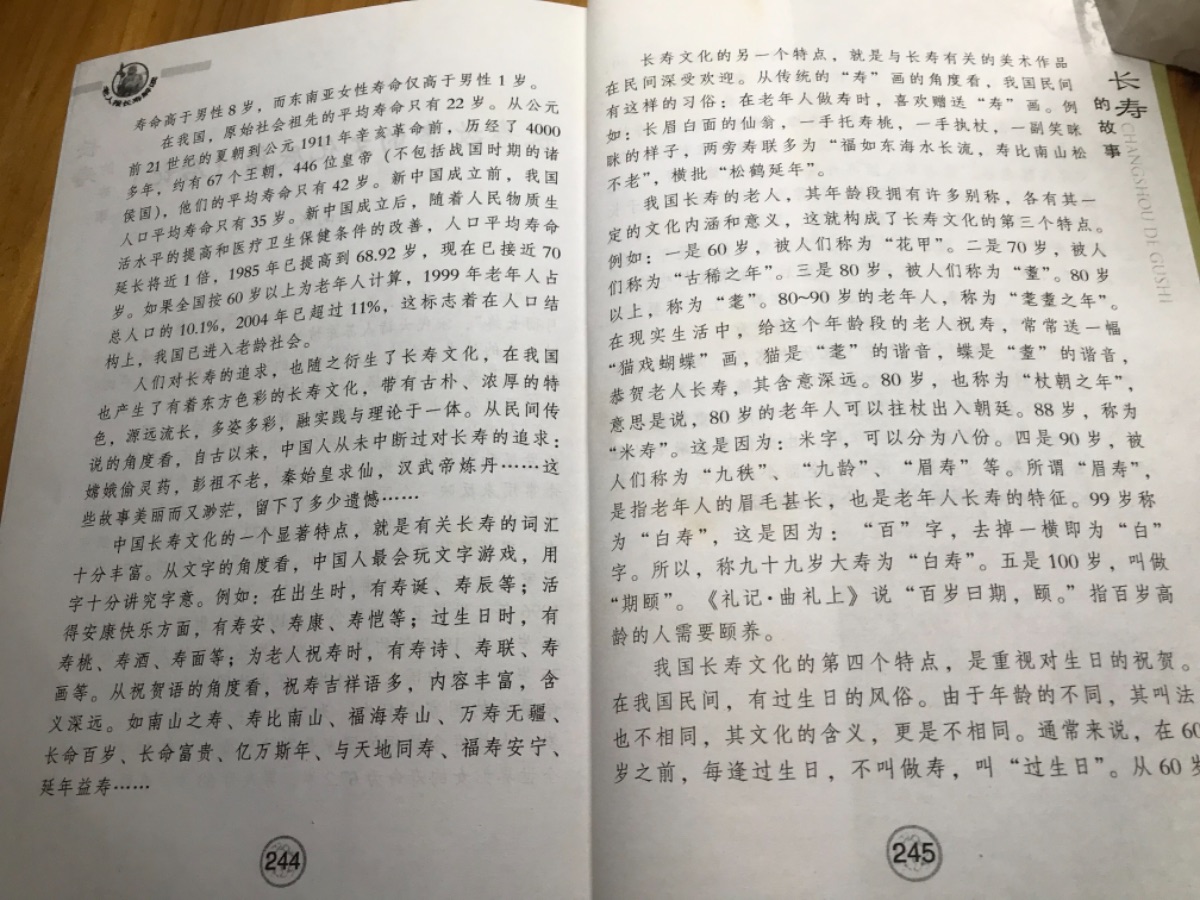 寿命高于男性8岁，而东南亚女性寿命仅高于男性1岁。
在我国，原始社会祖先的平均寿命只有22岁。从公元
前21世纪的夏朝到公元1911年辛亥革命前，历经了4000
多年，约有67个王朝，446位皇帝（不包括战国时期的诸
侯国），他们的平均寿命只有42岁。新中国成立前，我国
人口平均寿命只有35岁。新中国成立后，随着人民物质生
活水平的提高和医疗卫生保健条件的改善，人口平均寿命
延长将近1倍，1985年已提高到68.92岁，现在已接近70
岁。如果全国按60岁以上为老年人计算，1999年老年人占
总人口的10.1%，2004年已超过11%，这标志着在人口结
构上，我国已进入老龄社会。
人们对长寿的追求，也随之衍生了长寿文化，在我国
也产生了有着东方色彩的长寿文化，带有古朴、浓厚的特
色，源远流长，多姿多彩，融实践与理论于一体。从民间传
说的角度看，自古以来，中国人从未中断过对长寿的追求：
嫦娥偷灵药，彭祖不老，秦始皇求仙，汉武帝炼丹……这
些故事美丽而又渺茫，留下了多少遗憾……
中国长寿文化的一个显著特点，就是有关长寿的词汇
十分丰富。从文字的角度看，中国人最会玩文字游戏，用
字十分讲究字意。例如：在出生时，有寿诞、寿辰等；活
得安康快乐方面，有寿安、寿康、寿恺等；过生日时，有
寿桃、寿酒、寿面等；为老人祝寿时，有寿诗、寿联、寿
画等。从祝贺语的角度看，祝寿吉祥语多，内容丰富，含
义深远。如南山之寿、寿比南山、福海寿山、万寿无疆、
长命百岁、长命富贵、亿万斯年、与天地同寿、福寿安宁、
延年益寿……
244
长寿文化的另一个特点，就是与长寿有关的美术作品
在民间深受欢迎。从传统的“寿”画的角度看，我国民间
有这样的习俗：在老年人做寿时，喜欢赠送“寿”画。例
如：长眉白面的仙翁，一手托寿桃，一手执杖，一副笑眯
眯的样子，两旁寿联多为“福如东海水长流，寿比南山松
不老”，横批“松鹤延年”。
我国长寿的老人，其年龄段拥有许多别称，各有其一
定的文化内涵和意义，这就构成了长寿文化的第三个特点。
例如：一是60岁，被人们称为“花甲”。二是70岁，被人
们称为“古稀之年”。三是80岁，被人们称为“耋”。80岁
以上，称为“耄”。80~90岁的老年人，称为“耄耋之年”。
在现实生活中，给这个年龄段的老人祝寿，常常送一幅
“猫戏蝴蝶”画，猫是“耄”的谐音，蝶是“耋”的谐音，
恭贺老人长寿，其含意深远。80岁，也称为“杖朝之年”，
意思是说，80岁的老年人可以拄杖出入朝廷。88岁，称为
“米寿”。这是因为：米字，可以分为八份。四是90岁，被
人们称为“九秩”、“九龄”、“眉寿”等。所谓“眉寿”，
是指老年人的眉毛甚长，也是老年人长寿的特征。99岁称
为“白寿”，这是因为：“百”字，去掉一横即为“白”
字。所以，称九十九岁大寿为“白寿”。五是100岁，叫做
“期颐”。《礼记·曲礼上》说“百岁曰期，颐。”指百岁高
龄的人需要颐养。
我国长寿文化的第四个特点，是重视对生日的祝贺。
在我国民间，有过生日的风俗。由于年龄的不同，其叫法
也不相同，其文化的含义，更是不相同。通常来说，在60
岁之前，每逢过生日，不叫做寿，叫“过生日”。从60岁
245
长寿
的故事
CHANGSHOU DE GUSHI